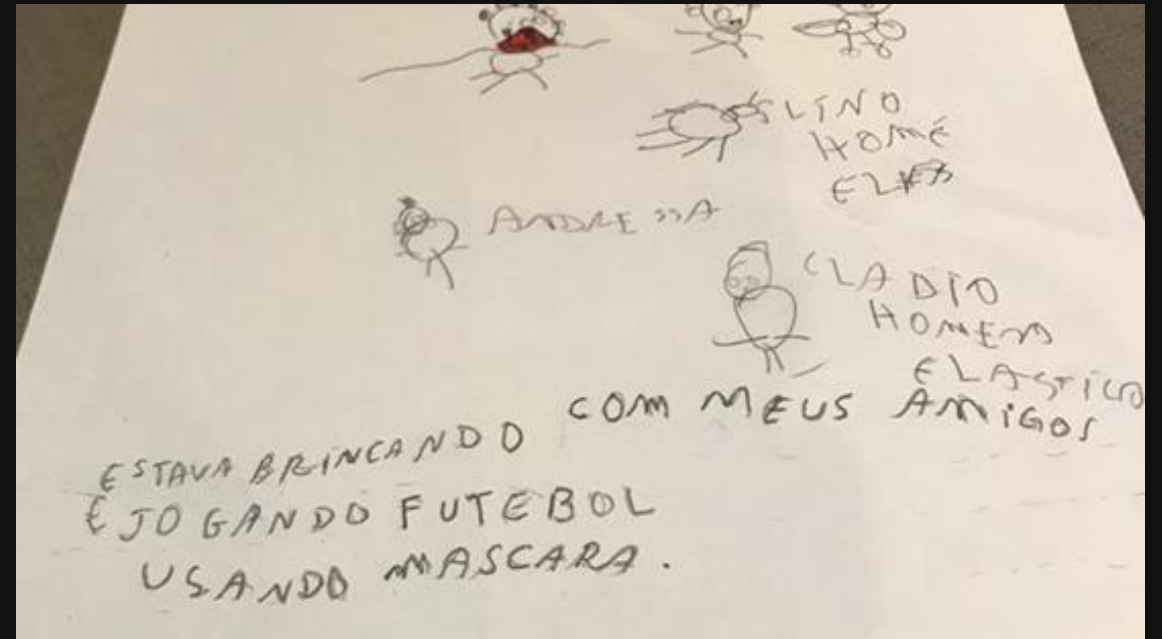 LINO
HOME
ANDRESSA
CLADIO
HOMEM
ELASTICO
ESTAVA BRINCANDO COM MEUS AMIGOS
E JOGANDO FUTEBOL
USANDO MASCARA.